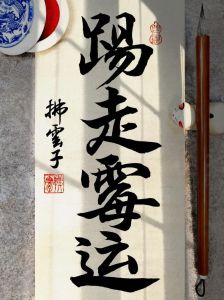 踢走霉运
拂雲子